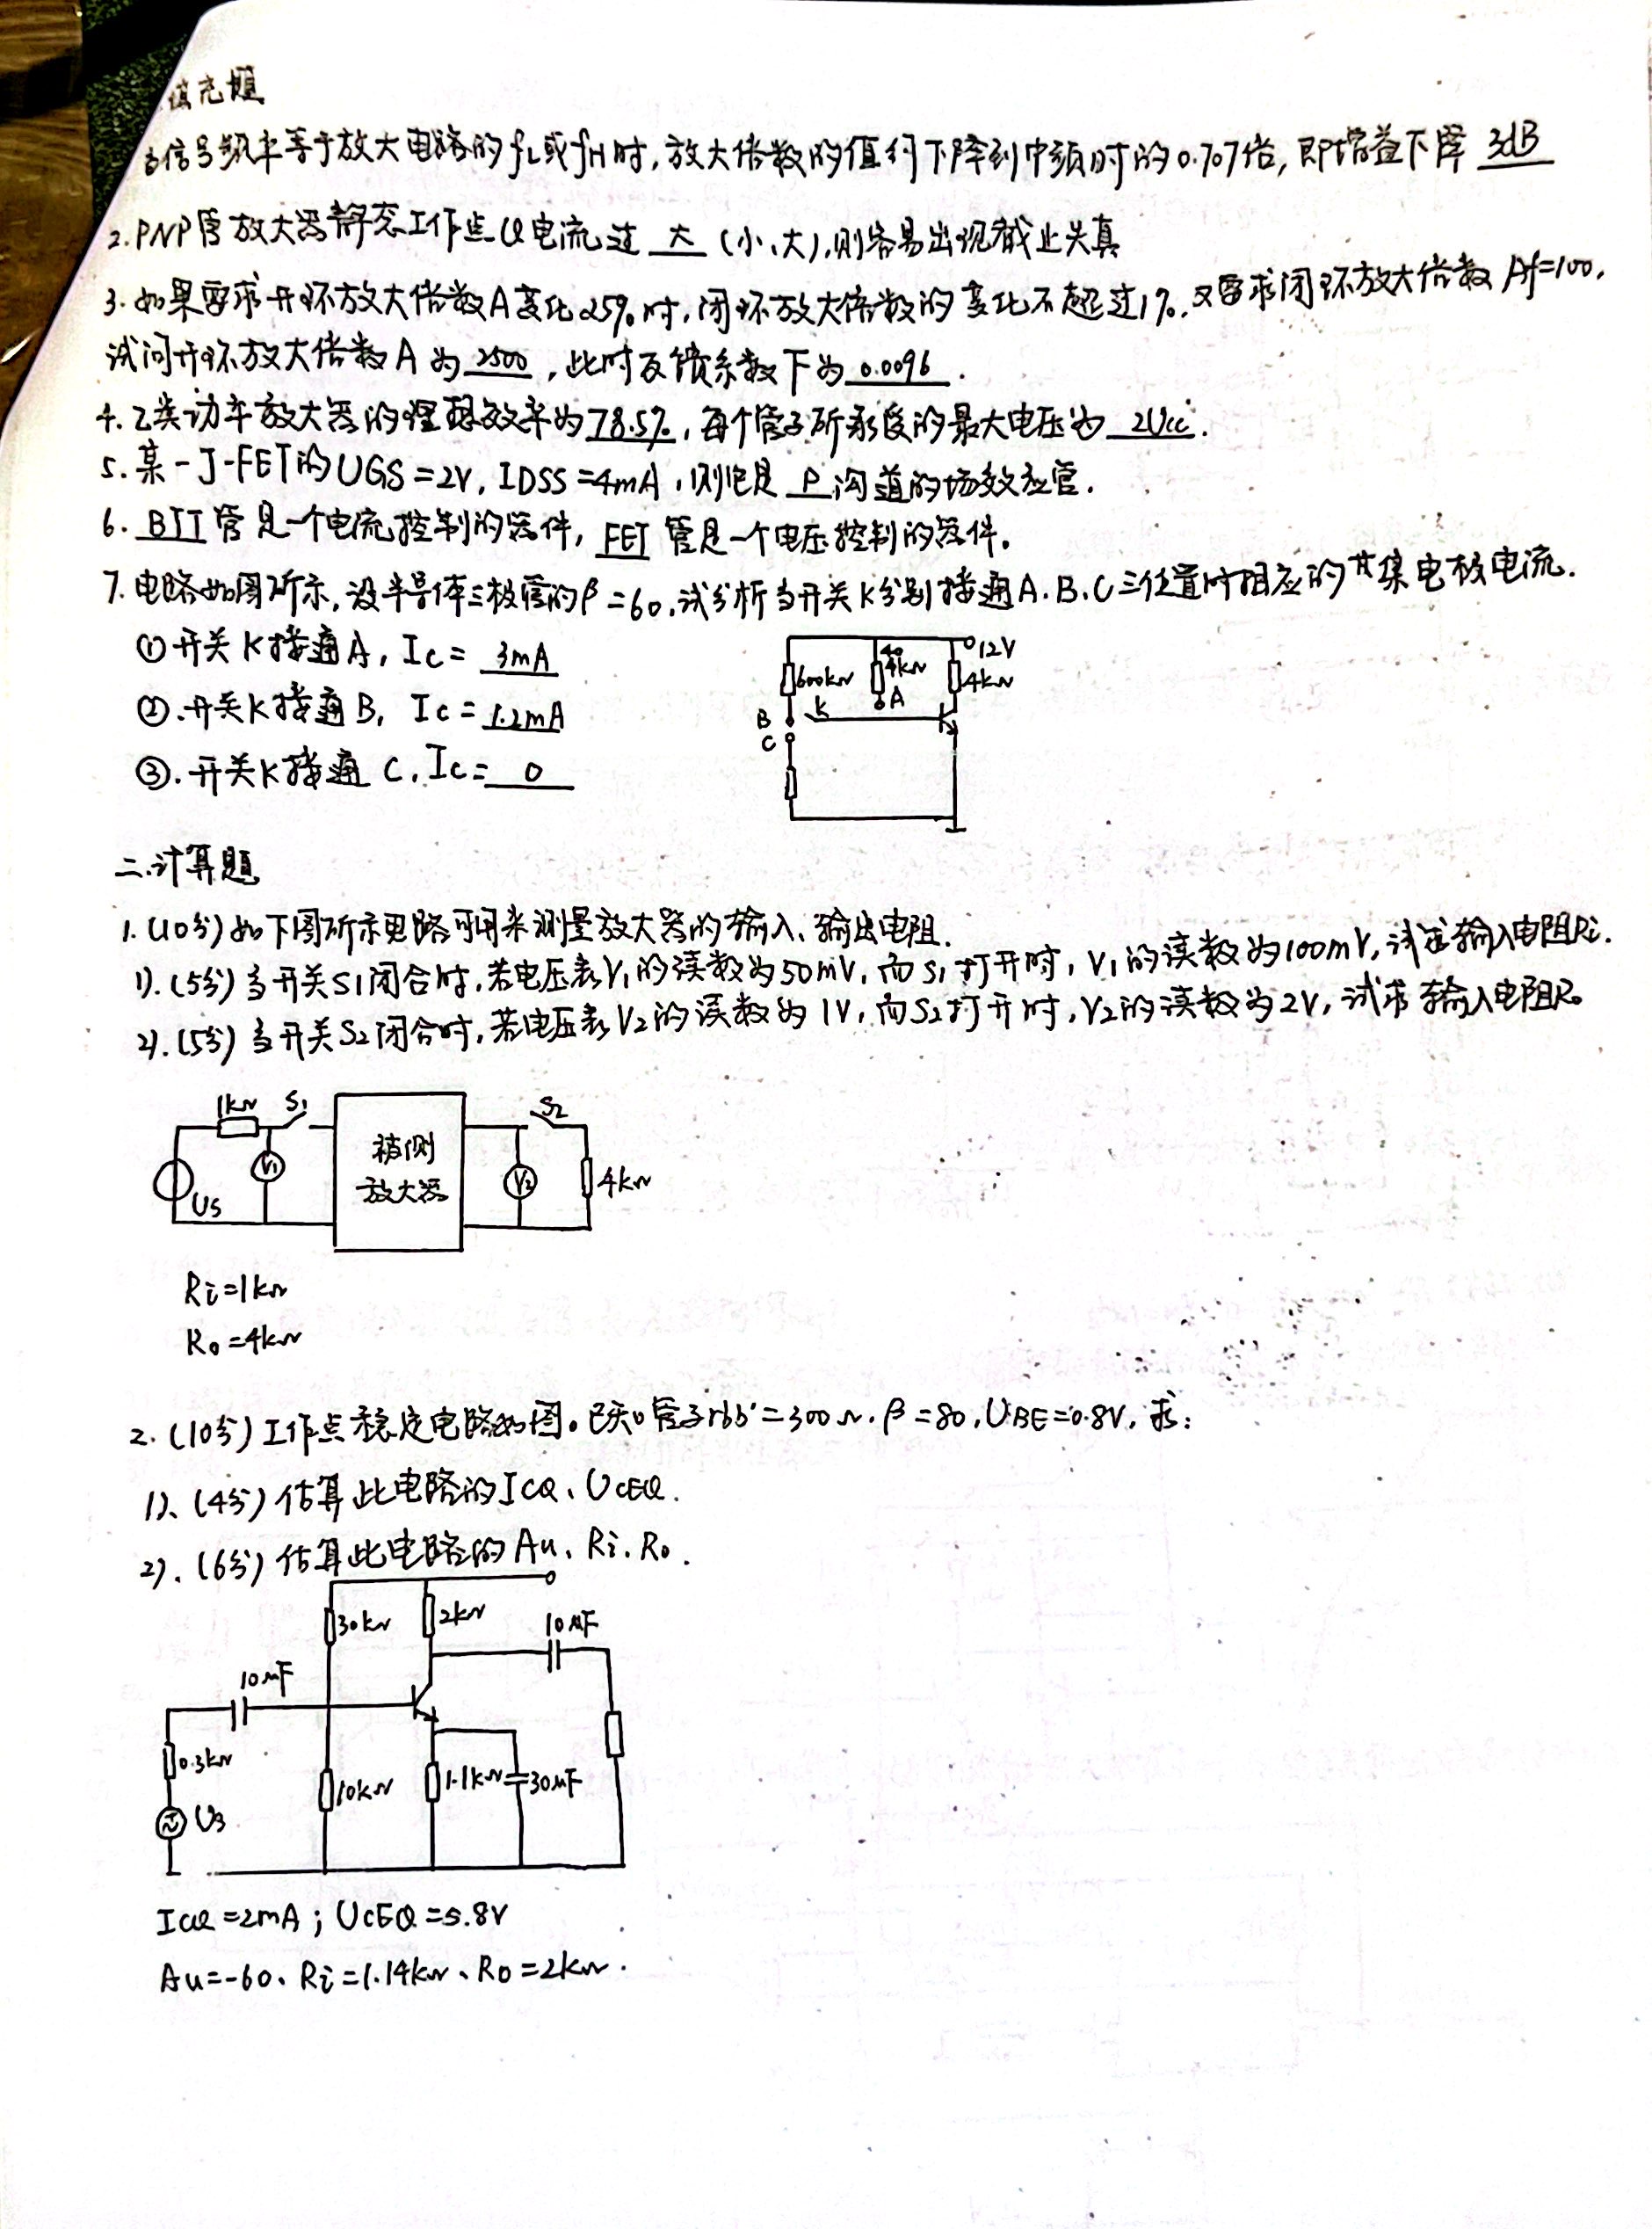 填充题
当信号频率等于放大电路的fL或fH时,放大倍数的值约下降到中频时的0.707倍,即增益下降 3dB
2.PNP管放大器静态工作点Q电流过 大 (小、大),则容易出现截止失真
3.如果要求开环放大倍数A变化25%时,闭环放大倍数的变化不超过1%,又要求闭环放大倍数Af=100,
试问开环放大倍数A为 2500 ,此时反馈系数F为 0.0096 .
4.乙类功率放大器的理想效率为78.5%,每个管子所承受的最大电压为 2Ucc.
5.某一J-FET的UGS=2V,IDSS=4mA,则它是 P 沟道的场效应管.
6. BJT 管是一个电流控制的器件, FET 管是一个电压控制的器件。
7.电路如图所示,设半导体三极管的β=60,试分析当开关K分别接通A.B.C三位置时相应的其集电极电流.
①开关K接通A, Ic= 3mA
②.开关K接通B, Ic= 1.2mA
③.开关K接通 C.Ic= 0
12V
600kΩ
4kΩ
4kΩ
B
K
A
C
二.计算题
1.(10分)如下图所示电路可用来测量放大器的输入、输出电阻.
1).(5分)当开关S1闭合时,若电压表V1的读数为50mV,而S1打开时,V1的读数为100mV,试求输入电阻Ri.
2).(5分)当开关S2闭合时,若电压表V2的读数为1V,而S2打开时,V2的读数为2V,试求输入电阻Ro
1kΩ S1
S2
V1
被测
放大器
V2
4kΩ
US
Ri=1kΩ
Ro=4kΩ
2.(10分)工作点稳定电路如图。已知管子rbb'=300Ω.β=80,UBE=0.8V,求:
1)、(4分)估算此电路的ICQ、UCEQ.
2).(6分)估算此电路的Au、Ri、Ro.
30kΩ
2kΩ
10μF
10μF
0.3kΩ
10kΩ
1.1kΩ
30μF
ICQ=2mA;UCEQ=5.8V
Au=-60、Ri=1.14kΩ、Ro=2kΩ.